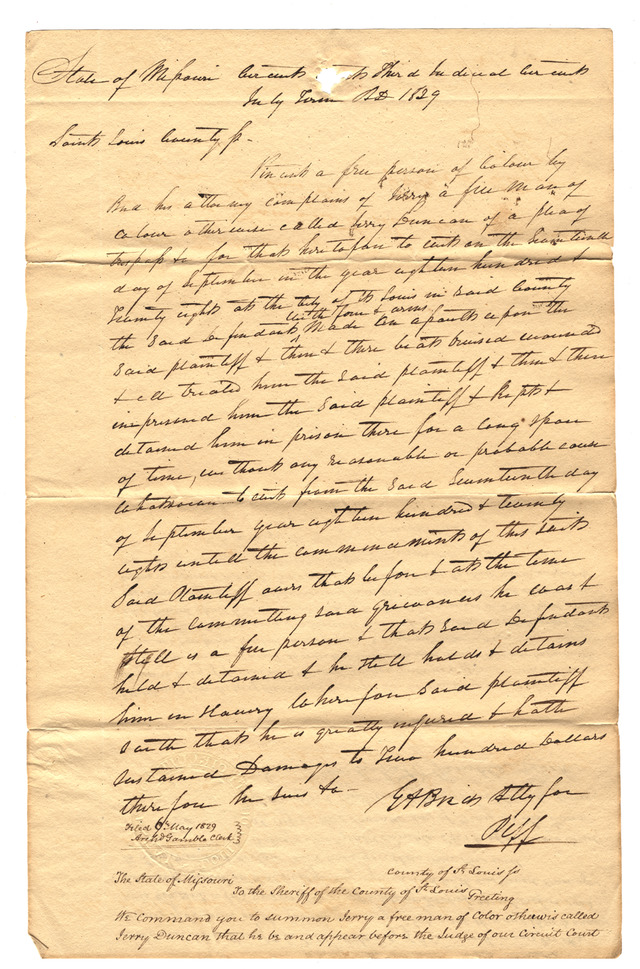 State of Missouri Circuit Third Judicial Circuit
July Term AD 1829
Saint Louis County ss.
Vincent a free person of Colour by
And his attorney complains of Jerry a free Man of
Colour otherwise called Jerry Duncan of a plea of
trespass & for that heretofore to wit on the Seventeenth
day of September in the year eighteen hundred &
Twenty eight at the City of St Louis in said County
the Said Defendant with force & arms Made an assault upon the
Said plaintiff & then & there beat bruised wounded
& ill treated him the Said plaintiff & then & there
imprisoned him the Said plaintiff & Kept &
detained him in prison there for a long space
of time, without any reasonable or probable cause
whatsoever to wit from the Said Seventeenth day
of September year eighteen hundred & twenty
eight untill the commencement of this Suit
Said Plaintiff avers that before & at the time
of the committing said grievances he was &
still is a free person & that Said Defendant
held & detained & he still holds & detains
him in Slavery Wherefore Said plaintiff
Saith that he is greatly injured & hath
Sustained Damages to Two hundred Dollars
therefore he sues to-
Atty for
Plff
Filed 6th May 1829
Archd Gamble Clerk
County of St Louis ss
The State of Missouri
To the Sheriff of the County of St Louis Greeting
We Command you to summon Jerry a free man of Color otherwis called
Jerry Duncan that he be and appear before the Judge of our Circuit Court